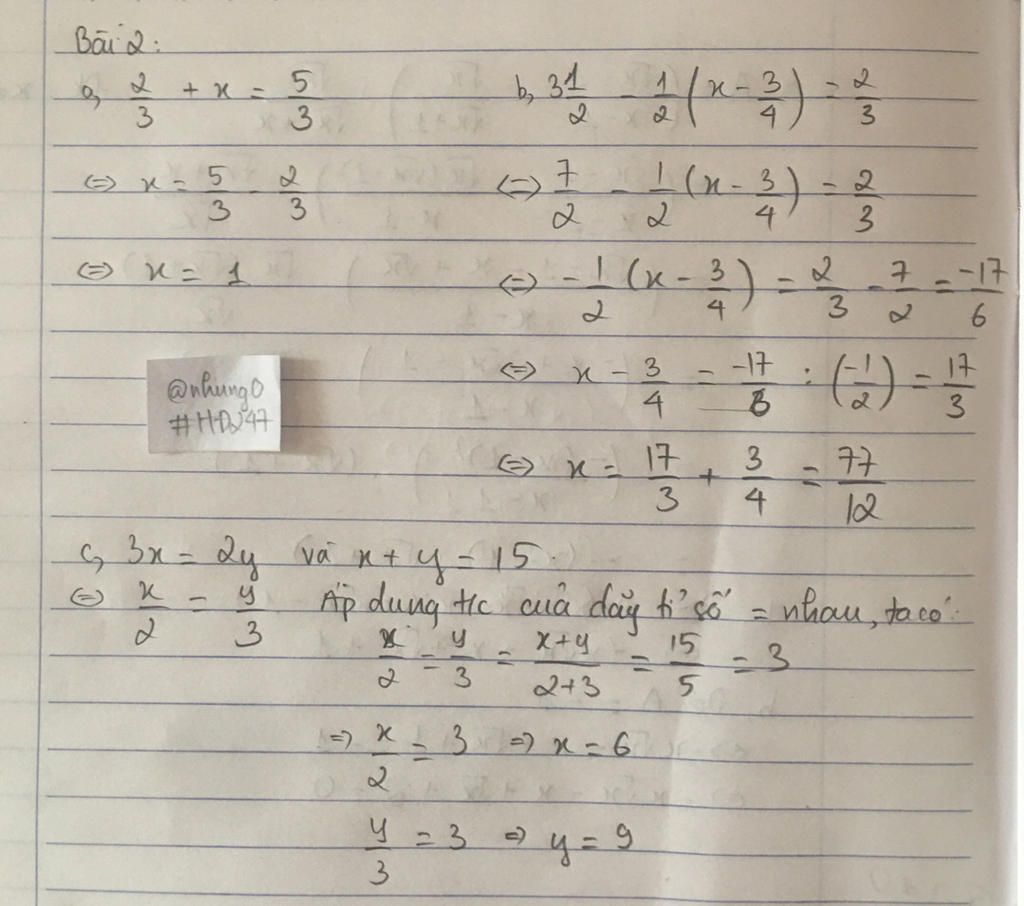 Bài 2:
a, 2/3 + x = 5/3
⇔ x = 5/3 - 2/3
⇔ x = 1
b, 3 1/2 - 1/2 (x - 3/4) = 2/3
⇔ 7/2 - 1/2 (x - 3/4) = 2/3
⇔ -1/2 (x - 3/4) = 2/3 - 7/2 = -17/6
⇔ x - 3/4 = -17/6 : (-1/2) = 17/3
⇔ x = 17/3 + 3/4 = 77/12
@nhung0
#HD247
c, 3x = 2y và x + y = 15.
⇔ x/2 = y/3 Áp dụng t/c của dãy tỉ số = nhau, ta có:
x/2 = y/3 = x+y/2+3 = 15/5 = 3
⇒ x/2 = 3 ⇒ x = 6
y/3 = 3 ⇒ y = 9